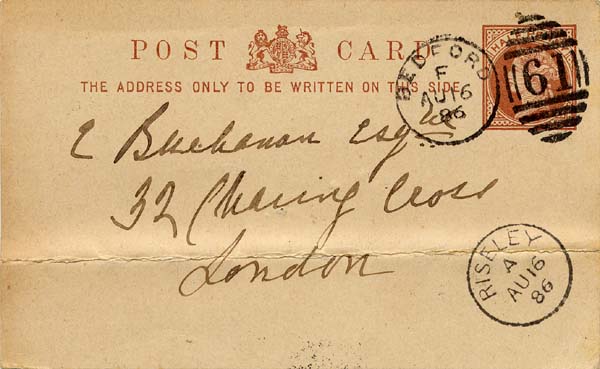 POST CARD
THE ADDRESS ONLY TO BE WRITTEN ON THIS SIDE
BEDFORD
F
AU 16
86
61
E Buchanan Esqre
32 Charing Cross
London
RISELEY
A
AU 16
86